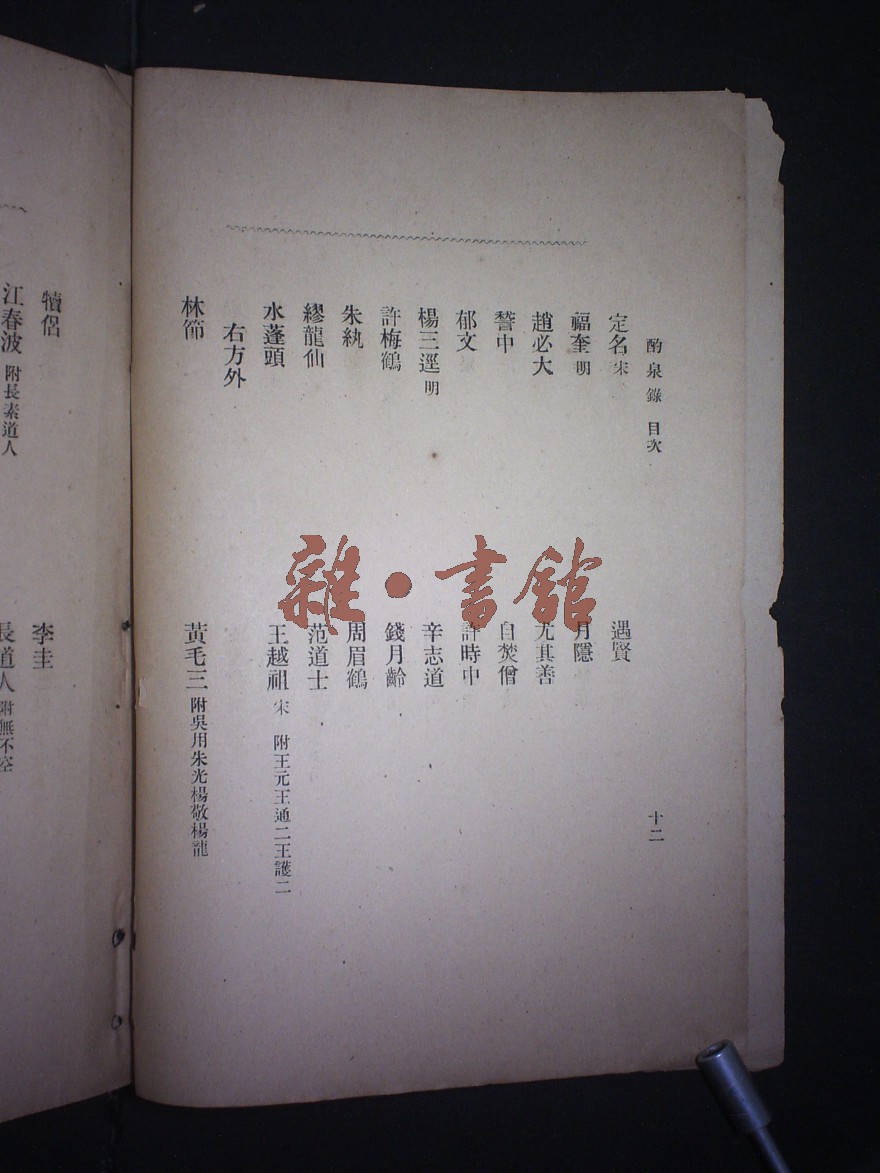 酌泉錄 目次 十二
定名 宋 遇賢
福奎 明 月隱
趙必大 尤其善
謷中 自焚僧
郁文 許時中
楊三逕 明 辛志道
許梅鶴 錢月齡
朱紈 周眉鶴
繆龍仙 范道士
水蓬頭 王越祖 宋 附王元王通二王護二
右方外
林節 黃毛三 附吳用朱光楊敬楊龍
犢侶 李圭
江春波 附長素道人 長道人 附無不空
雜·書館